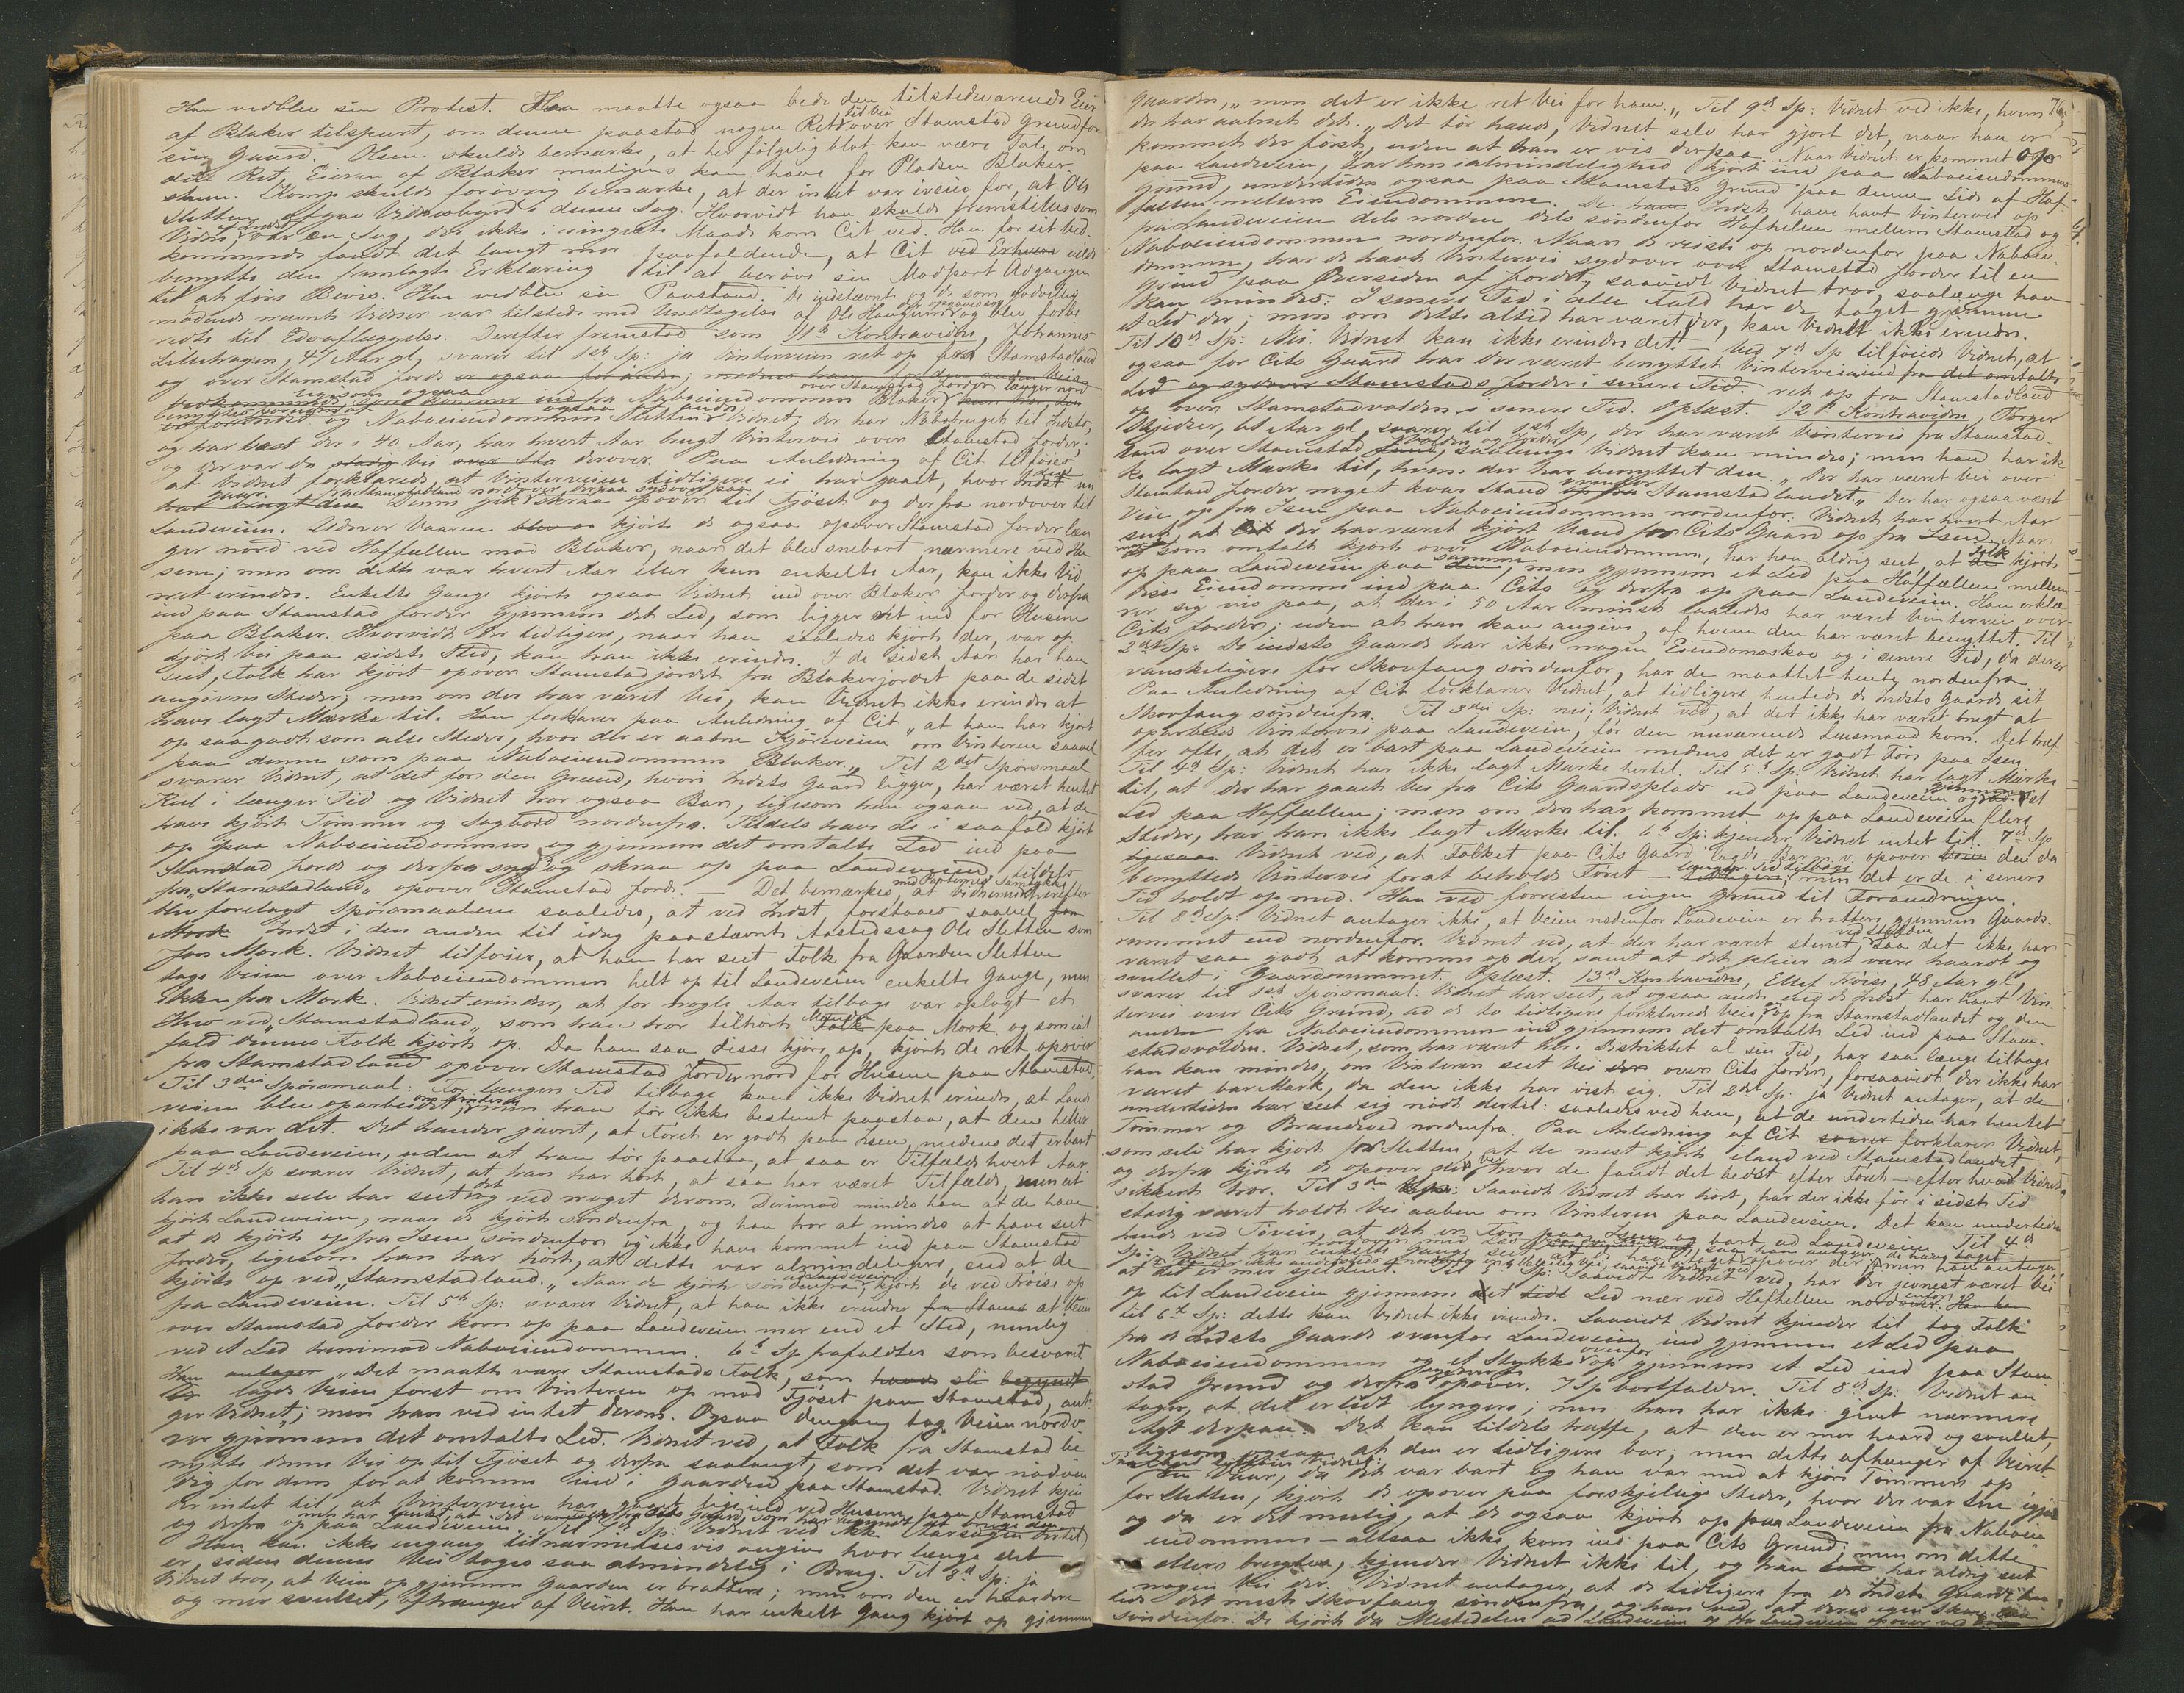 Han vedblev sin Protest. Han maatte ogsaa bede den tilstedeværende Eier
af Blaker tilspurt, om denne paastod nogen Ret til Vei over Stamstad Grund for
sin Gaard. Olsen skulde bemærke, at her følgelig blot kan være Tale om
den Ret, Eieren af Blaker muligens kan have for Pladsen Blaker
Komp skulde forøvrig bemærke, at der intet var iveien for, at Ole
Sletten afgav Vidnesbyrd i denne Sag. Hvorvidt han skulde fremstilles som
Vidne, var en Sag, der ikke i ringeste Maade kom Cit ved. Han for sit Ved-
kommende fandt det langt mer paafaldende, at Cit vilde
benytte den fremlagte Erklæring til at berøve sin Modpart Adgangen
til at føre Bevis. Han vedblev sin Paastand. De indstævnte og de som godvillig
mødende nævnte Vidner var tilstede med Undtagelse af Ole Haugrim og blev forbe
redte til Edsaflæggelse. Derefter fremstod som 11te Kontravidne, Johannes
Lilluhagen, 47 Aar gl, svarer til 1ste Sp: ja Vinterveien ret op fra Stamstadland
og over Stamstad Jorde
ligesom ogsaa fra Naboeiendommen Blaker over Stamstad Jorder længer nord
og Naboeiendommen Sletten. Vidnet, der har Nabobruget til Indste,
og har boet der i 40 Aar, har hvert Aar brugt Vintervei over Stamstad Jorder;
og der var da Vei derover. Paa Anledning af Cit tilføies
at Vidnet forklarede, at Vinterveien tidligere ei har gaaet, hvor Indst nu
gaar. Denne gik fra Stamstadland nordover skraa opover til Fjøset og derfra nordover til
Landeveien. Udover Vaaren kjørte de ogsaa opover Stamstad Jorder læn
ger nord ved Haffællen mod Blaker, naar det blev snebart nærmere ved Hu
sene; men om dette var hvert Aar eller kun enkelte Aar, kan ikke Vid
net erindre. Enkelte Gange kjørte ogsaa Vidnet ind over Blaker Jorder og derfra
ind paa Stamstad Jorder gjennem det Led, som ligger ret ind for Husene
paa Blaker. Hvorvidt der tidligere, naar han saaledes kjørte der, var op
kjørt Vei paa sidste Sted, kan han ikke erindre. I de sidste Aar har han
seet, Folk har kjørt opover Stamstadjordet fra Blakerjordet paa de sidst
angivne Steder; men om der har været Vei, kan Vidnet ikke erindre at
have lagt Mærke til. Han forklarer paa Anledning af Cit „at han har kjørt
op saagodtsom alle Steder, hvor der er aaben Kjørevei om Vinteren saavel
paa denne som paa Naboeiendommen Blaker". Til 2det Spørsmaal
svarer Vidnet, at det fra den Grund, hvori Indsts Gaard ligger, har været hentet
Kul i længer Tid og Vidnet tror ogsaa Bar, ligesom han ogsaa ved, at de
have kjørt Tømmer og Sagbord nordenfra. Tildels have de i saafald kjørt
op paa Naboeiendommen og gjennem det omtalte Led ind paa
Stamstad Jorde og derfra sydover skraa op paa Landeveien, tildels
fra „Stamstadland" opover Stamstad Jorde. — Det bemærkes, med Parternes Samtykke at Vidnerne herefter
blev forelagt Spørsmaalene saaledes, at ved Indst forstaaes saavel
Indst i den anden til idag paastævnte Aastedssag Ole Sletten som
Jørs Mork. Vidnet tilføier, at han har seet Folk fra Gaarden Sletten
tage Veien over Naboeiendommen helt op til Landeveien enkelte Gange, men
ikke fra Mork. Vidnet erindrer, at for nogle Aar tilbage var oplagt et
Hus ved „Stamstadland" som han tror tilhørte Manden paa Mork og som ial
fald dennes Folk kjørte op. Da han saa disse kjøre op, kjørte de ret opover
fra Stamstadland opover Stamstad Jorder nord for Husene paa Stamstad.
Til 3die Spørsmaal: For længere Tid tilbage kan ikke Vidnet erindre, at Land
veien blev oparbeidet om Vinteren, men han tør ikke bestemt paastaa, at den heller
ikke var det. Det hænder jævnt, at Føret er godt paa Isen, medens det er bart
paa Landeveien, uden at han tør paastaa, at saa er Tilfælde hvert Aar.
Til 4de Sp svarer Vidnet, at han har hørt, at saa har været Tilfælde, men at
han ikke selv har seet det og ved noget derom. Derimod mindes han at de have
kjørt Landeveien, naar de kjørte søndenfra, og han tror at mindes at have seet
at de kjørte op fra Isen søndenfor og ikke have kommet ind paa Stamstad
Jorder, ligesom han har hørt, at dette var almindeligere, end at de
kjørte op ved „Stamstadland." Naar de kjørte søndenfra ad Landeveien, kjørte de ved Troise op
fra Landeveien. Til 5te Sp: svarer Vidnet, at han ikke erindrer at Veien
over Stamstad Jorder kom op paa Landeveien mer end et Sted, nemlig
ved et Led henimod Naboeiendommen. 6te Sp frafaldtes som besvaret.
„Det maatte være Stamstads Folk, som
lagde Veien først om Vinteren op mod Fjøset paa Stamstad, anta
ger Vidnet"; men han ved intet derom. Ogsaa dengang tog Veien nordo
ver gjennem det omtalte Led. Vidnet ved, at Folk fra Stamstad be
nyttede denne Vei op til Fjøset og derfra saalangt, som det var nødven
dig for dem for at komme ind i Gaarden paa Stamstad. Vidnet kjen
der intet til, at Vinterveien har gaaet lige ind ved Husene paa Stamstad
og derfra op paa Landeveien. Til 7de Sp: Vidnet ved ikke Aarsagen hertil,
Han kan ikke engang tilnærmelsesvis angive hvor længe det
er, siden denne Vei toges saa almindelig i Brug. Til 8de Sp: ja
Vidnet tror, at Veien op gjennem Gaarden er brattere; men om den er haardere
og mer svullet, afhænger af Veiret. Han har enkelt Gang kjørt op gjennem
76.
Gaarden, „men det er ikke ret Vei for ham". Til 9de Sp: Vidnet ved ikke, hvem
der har aabnet den. „Det tør hænde, Vidnet selv har gjort det, naar han er
kommet der først, uden at han er vis derpaa. Naar Vidnet er kommet op
paa Landeveien, har han i almindelighed kjørt ind paa Naboeiendommens
Grund, undertiden ogsaa paa Stamstads Grund paa denne Side af Haf-
fællen mellem Eiendommene. De Indste have havt Vintervei op
fra Landeveien dels norden dels søndenfor Hafhellen mellem Stamstad og
Naboeiendommen nordenfor. Naar de reiste op nordenfor paa Naboei-
dommen, har de havt Vintervei sydover over Stamstad Jorder til en
Grind paa Oversiden af Jordet, saavidt Vidnet tror, saalænge han
kan mindes. I senere Tid i alle Fald har de taget gjennem
et Led der; men om dette altid har været der, kan Vidnet ikke erindre.
Til 10de Sp: Nei. Vidnet kan ikke erindre det. — Ved 7de Sp tilføiede Vidnet, at
ogsaa for Cits Gaard har der været benyttet Vinterveien
ret op fra Stamstadland
op over Stamstadvolden i senere Tid. Oplæst. 12te Kontravidne, Torger
Bljedser, 65 Aar gl, svarer til 1ste Sp, der har været Vintervei fra Stamstad-
land over Stamstad volden og Jorder, saalænge Vidnet kan mindes; men han har ik
ke lagt Mærke til, hvem der har benyttet den. „Der har været Vei over
Stamstad Jorder noget kvar Stand ovenfor Stamstadlandet". Der har ogsaa været
Vei op fra Isen paa Naboeiendommen nordenfor. Vidnet har hvert Aar
seet, at der har været kjørt Vand for Cits Gaard op fra Isen. Naar
som omtalt kjørt over Naboeiendommen, har han aldrig seet, at Folk kjørte
op paa Landeveien paa samme, men gjennem et Led paa Haffællen mellem
disse Eiendomme ind paa Cits og derfra op paa Landeveien. Han erklæ
rer sig vis paa, at der i 50 Aar mindst saaledes har været Vintervei over
Cits Jorder; uden at han kan angive, af hvem den har været benyttet. Til
2det Sp: De Indsts Gaarde har ikke nogen Eiendomsskov og i senere Tid, da der er
vanskeligere for Skovfang søndenfor, har de maattet hente nordenfra.
Paa Anledning af Cit forklarer Vidnet, at tidligere hentede de Indsts Gaarde sit
Skovfang søndenfra. Til 3die Sp: nei; Vidnet ved, at det ikke har været brugt at
oparbeide Vintervei paa Landeveien, før den nuværende Lensmand kom. Det træf-
fer ofte, at det er bart paa Landeveien medens det er godt Føre paa Isen.
Til 4de Sp: Vidnet har ikke lagt Mærke hertil. Til 5te Sp: Vidnet har lagt Mærke
til, at der har gaaet Vei fra Cits Gaardsplads ud paa Landeveien gjennem et
Led paa Haffællen; men om den har kommet op paa Landeveien flere
Steder, har han ikke lagt Mærke til. 6te Sp: kjender Vidnet intet til. 7de Sp
Vidnet ved, at Folket paa Cits Gaard lagde Bar m.v. opover den da
benyttede Vintervei forat beholde Føret — længer Tid tilbage; men det er de i senere
Tid holdt op med. Han ved forresten ingen Grund til Forandringen.
Til 8de Sp: Vidnet antager ikke, at Veien nedenfor Landeveien er brattere gjennem Gaards-
rummet end nordenfor. Vidnet ved, at der har været stenet, saa det ikke har
været saa godt at komme op der, samt at det pleier at være haardt og
svullet i Gaardsrummet. Oplæst. 13de Kontravidne, Ellef Troise, 48 Aar gl,
svarer til 1ste Spørsmaal: Vidnet har seet, at ogsaa andre end de Indst har havt Vin
tervei over Cits Grund, ad de to tidligere forklarede Veie, op fra Stamstadlandet og den
anden fra Naboeiendommen ind gjennem det omtalte Led ind paa Stam-
stadvolden. Vidnet, som har været her i Distriktet al sin Tid, har saa længe tilbage
han kan mindes, om Vinteren seet Vei over Cits Jorder, forsaavidt der ikke har
været bar Mark, da den ikke har vist sig. Til 2det Sp: ja Vidnet antager, at de
undertiden har seet sig nødt dertil: saaledes ved han, at de undertiden har hentet
Tømmer og Brændeved nordenfra. Paa Anledning af Cit forklarer Vidnet,
som selv har kjørt for Sletten, at de mest kjørte iland ved Stamstadlandet
og derfra kjørte de opover den Vei, hvor de fandt det bedst efter Føret — efter hvad Vidnet
sikkert tror. Til 3die Sp: Saavidt Vidnet har hørt, har der ikke før i sidste Tid
stadig været holdt Vei aaben om Vinteren paa Landeveien. Det kan undertiden
hænde ved Tøveir, at det er Føre paa Isen og bart ad Landeveien. Til 4de
Sp: Vidnet har enkelte Gange seet
at det er mer sjeldent. Til 5te Sp: Saavidt Vidnet ved, har der jevnest været Vei
op til Landeveien gjennem det Led nær ved Hafhellen nordenfor.
til 6te Sp: dette kan Vidnet ikke erindre. Saavidt Vidnet kjender til tog Folk
fra de Indsts Gaarde ovenfor Landeveien ind gjennem et Led paa
Naboeiendommen og et Stykke ovenfor op gjennem et Led ind paa Stam
stad Grund og derfra opover. 7 Sp bortfalder. Til 8de Sp: Vidnet an
tager, at det er lidt tyngere; men han har ikke givet nærmere
Agt derpaa. Det kan tildels træffe, at den er mer haard og svullet,
at den er tidligere bar; men dette afhænger af Veiret.
Vaar, da det var bart og han var med at kjøre Tømmer op
for Sletten, kjørte de opover paa forskjellige Steder, hvor der var Sne igjen
og da er det mulig, at de ogsaa kjørte op paa Landeveien fra Naboei-
endommen — altsaa ikke kom ind paa Cits Grund; men om dette
ellers brugtes, kjender Vidnet ikke til, og han har aldrig seet
nogen Vei der. Vidnet antager, at de tidligere fra de Indsts Gaarde hen
tede det meste Skovfang søndenfra, og han ved, at deres egen Skov
søndenfor. De kjørte da Mestedelen ad Landeveien og fra Landeveien opover ved